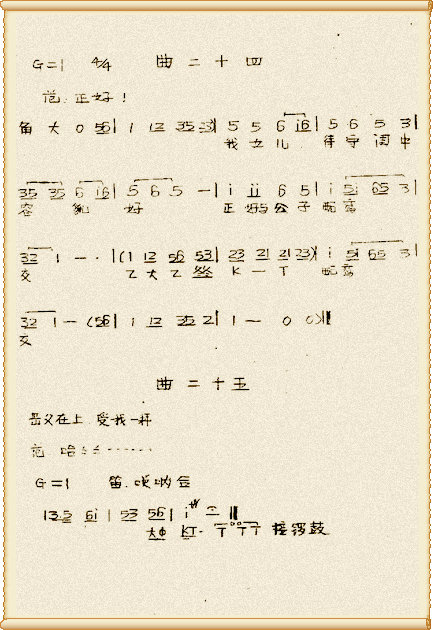 G=1 4/4 曲二十四
范:正好!
角 大 0 56 | 1 12 35 23 | 5 5 6 i6 | 5 6 5 3 |
我女儿 待字闺中
35 35 6 i6 | 5 6 5 — | i ii 6 5 | i 5i 65 3 |
容貌好 正好与公子配鸾
32 1 — · | (1 12 56 53 | 23 21 21 23) | i 5i 65 3 |
交 乙大乙 K — T 配鸾
32 1 — (56 | 1 12 35 2 | 1 — 0 0) ‖
交
曲二十五
岳父在上 受我一拜
范 哈
G=1 笛.唢呐
13.5 6i | 53 56 | i — ‖
KT· 接锣鼓